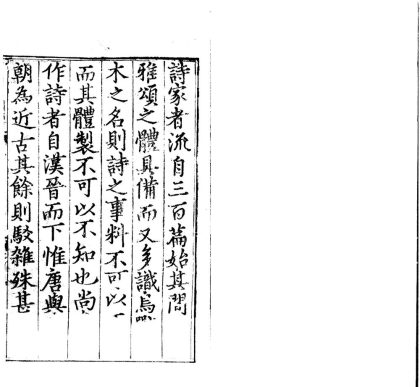 詩家者流自三百篇始其間
雅頌之體具備而又多識鳥
木之名則詩之事料不可以
而其體製不可以不知也尚
作詩者自漢晉而下惟唐與
朝為近古其餘則駁雜殊甚